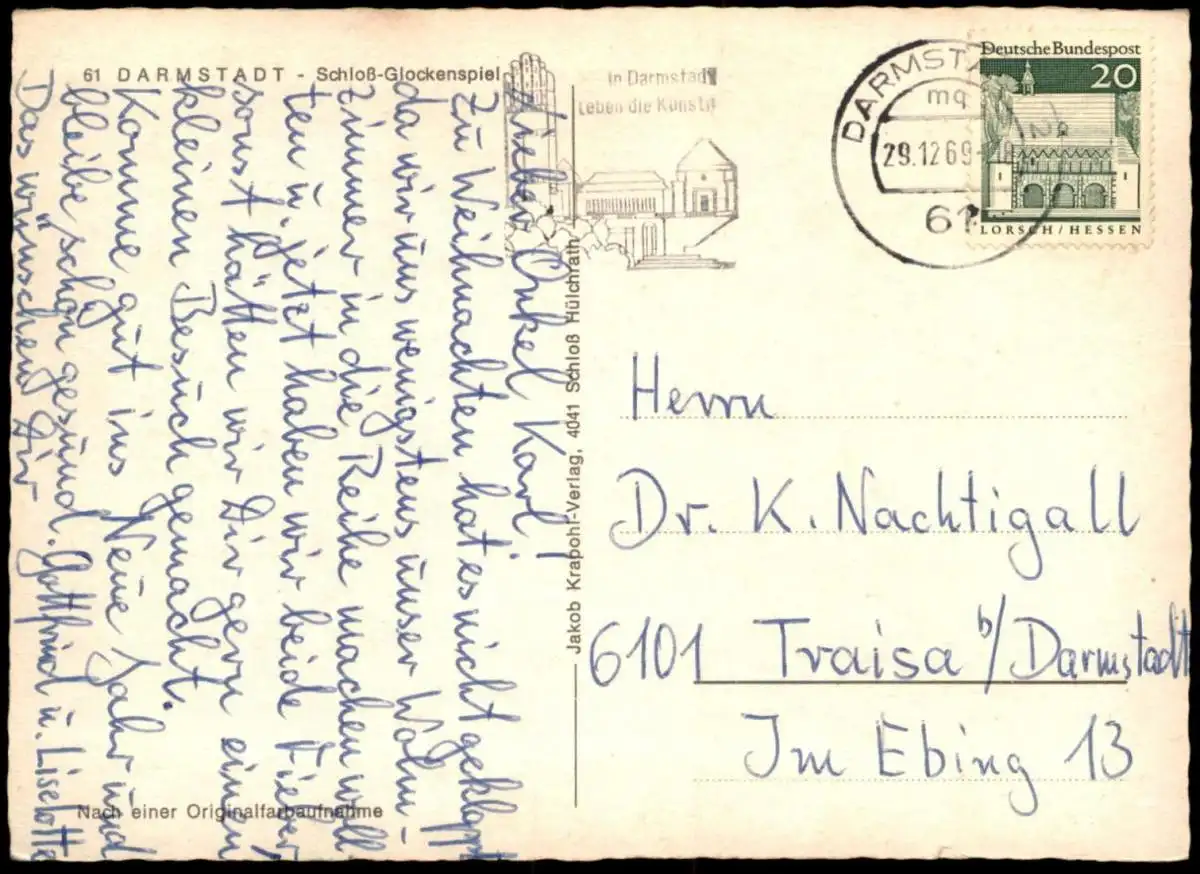 61 DARMSTADT - Schloß-Glockenspiel
In Darmstadt
Leben die Künste
DARMSTADT
mq
29.12.69
61
Deutsche Bundespost
20
LORSCH/HESSEN
Lieber Onkel Karl!
Zu Weihnachten hat es nicht geklappt
da wir uns wenigstens unser Wohn-
zimmer in die Reihe machen woll-
ten u. jetzt haben wir beide Fieber,
sonst hätten wir Dir gern einen
kleinen Besuch gemacht.
Komme gut ins Neue Jahr und
bleibe schön gesund.
Das wünschen Dir
Gottfried u. Liselotte
Jakob Krapohl-Verlag, 4041 Schloß Hülchrath
Herrn
Dr. K. Nachtigall
6101 Traisa b/Darmstadt
Im Ebing 13
Nach einer Originalfarbaufnahme